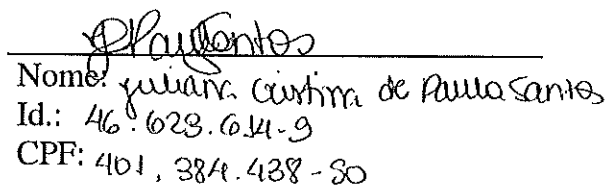 JPaulSantos
Nome: Juliana Cristina de Paula Santos
Id.: 46.623.614-9
CPF: 401.384.438-50